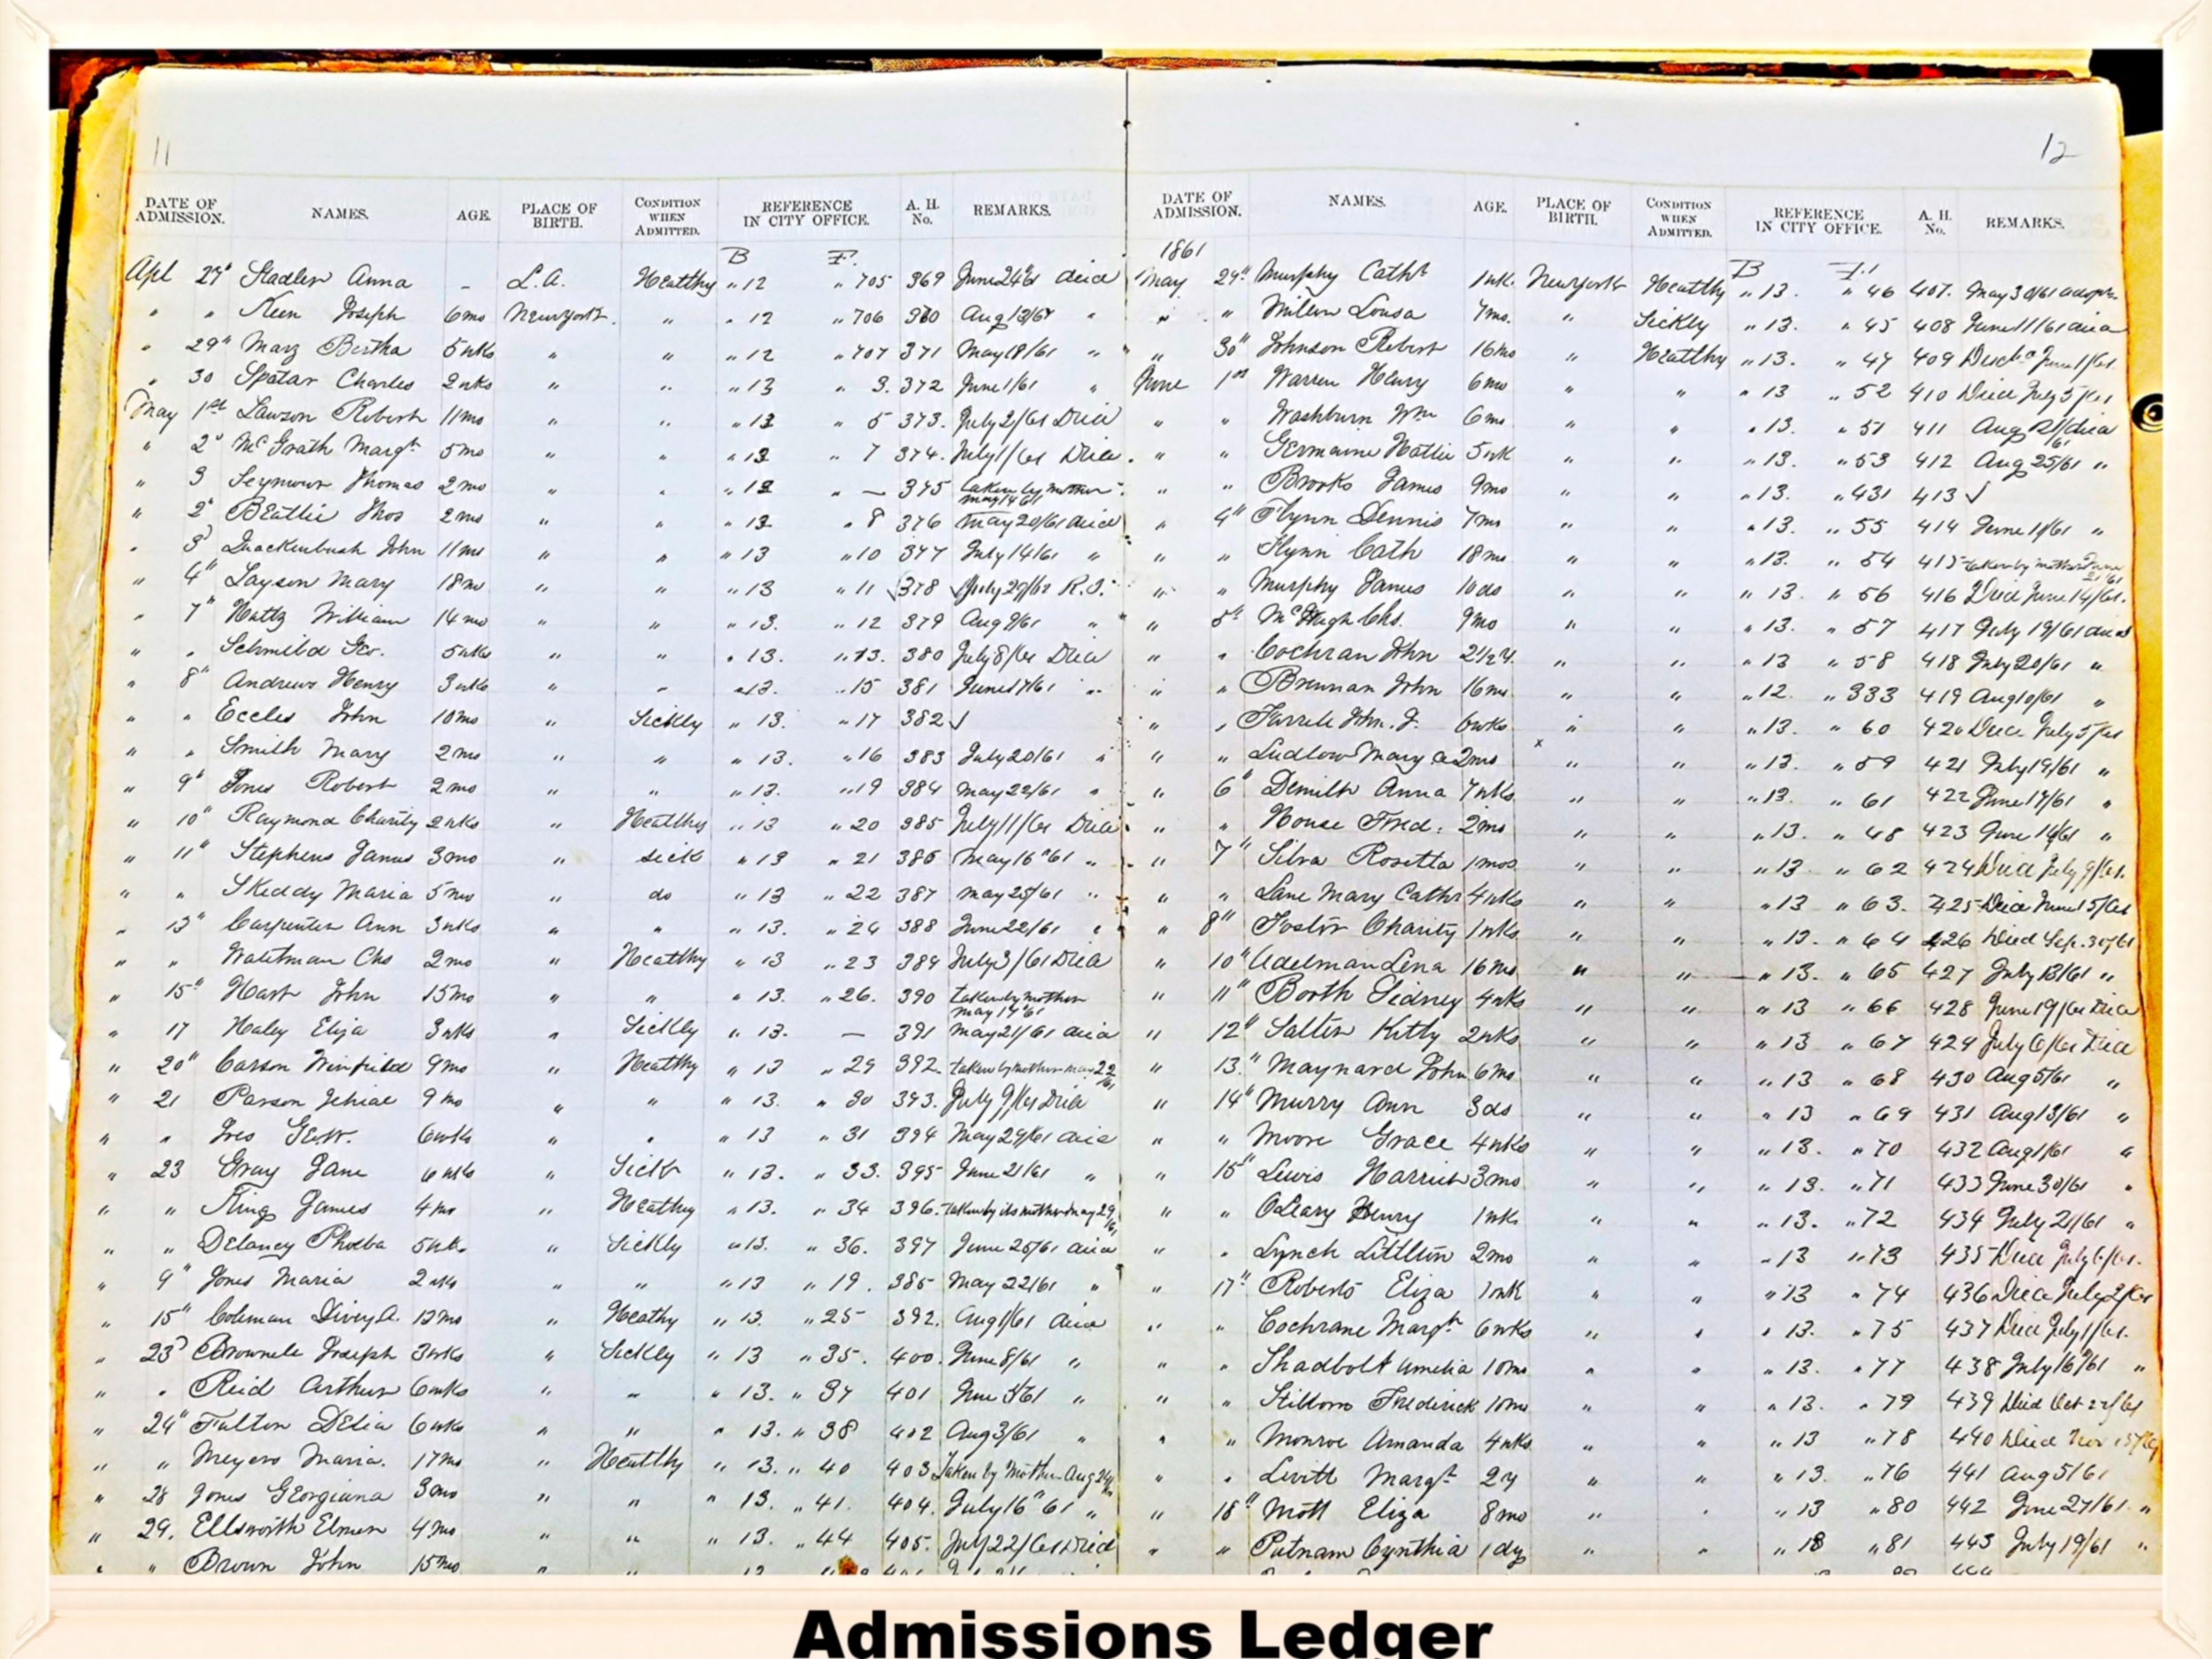 11
DATE OF ADMISSION. NAMES. AGE. PLACE OF BIRTH. CONDITION WHEN ADMITTED. REFERENCE IN CITY OFFICE. A. H. No. REMARKS.
B F.
Apl 27" Stadler Anna - L.A. Healthy " 12 " 705 369 June 24/61 died
" " Keen Joseph 6mo New York " " 12 " 706 370 Aug 13/61 "
" 29" Marz Bertha 5wks " " " 12 " 707 371 May 18/61 "
" 30 Spatar Charles 2wks " " " 13 " 3. 372 June 1/61 "
May 1st Lawson Robert 11mo " " " 13 " 5 373. July 2/61 Died
" 2" McGrath Margt 5mo " " " 13 " 7 374. July 1/61 Died
" 3 Seymour Thomas 2mo " " " 13 " — 375 taken by mother May 14/61
" 2" Beattie Thos 2mo " " " 13 " 8 376 May 20/61 died
" 3" Quackenbush John 11mo " " " 13 " 10 377 July 14/61 "
" 4" Layson Mary 18mo " " " 13 " 11 378 July 29/62 R.I.
" 7" Hattz William 14mo " " " 13. " 12 379 Aug 9/61 "
" " Schmild Geo. 5wks " " " 13. " 13. 380 July 8/61 Died
" 8" Andrews Henry 3wks " " " 13. " 15 381 June 17/61 "
" " Eccles John 10mo " Sickly " 13. " 17 382 ✓
" " Smith Mary 2mo " " " 13. " 16 383 July 20/61 "
" 9" Jones Robert 2mo " " " 13. " 19 384 May 22/61 "
" 10" Raymond Charity 2wks " Healthy " 13 " 20 385 July 11/61 Died
" 11" Stephens James 3mo " sick " 13 " 21 386 May 16"61 "
" " Skeddy Maria 5mo " do " 13 " 22 387 May 25/61 "
" 13" Carpenter Ann 3wks " " " 13. " 24 388 June 22/61 "
" " Waltman Chs 2mo " Healthy " 13 " 23 389 July 3/61 Died
" 15" Hart John 15mo " " " 13. " 26. 390 taken by mother May 17"61
" 17 Haley Eliza 3wks " Sickly " 13. — 391 May 21/61 died
" 20" Carson Winfield 9mo " Healthy " 13 " 29 392. taken by mother May 22/61
" 21 Parson Jehial 9mo " " " 13. " 30 393. July 9/61 Died
" " Ives Geo W. 6wks " " " 13 " 31 394 May 29/61 died
" 23 Gray Jane 6wks " Sick " 13. " 33. 395 June 21/61 "
" " King James 4mo " Healthy " 13. " 34 396. taken by its mother May 29/61
" " Delaney Phoeba 5wk. " Sickly " 13. " 36. 397 June 25/61 died
" 9" Jones Maria 2wks " " " 13 " 19. 385 May 22/61 "
" 15" Coleman A. 13mo " Heathy " 13. " 25 392. Aug 1/61 died
" 23" Brownele Joseph 3wks " Sickly " 13 " 35. 400. June 8/61 "
" " Reid Arthur 6wks " " " 13. " 37 401 June 3/61 "
" 24" Fulton Delia 6wks " " " 13. " 38 402 Aug 3/61 "
" " Meyers Maria. 17mo " Healthy " 13. " 40 403 Taken by Mother Aug
" 28 Jones Georgiana 3mo " " " 13. " 41. 404. July 16"61 "
" 29. Ellsworth Elmer 4mo " " " 13. " 44 405. July 22/61 Died
" " Brown John 15mo " "
12
DATE OF ADMISSION. NAMES. AGE. PLACE OF BIRTH. CONDITION WHEN ADMITTED. REFERENCE IN CITY OFFICE. A. H. No. REMARKS.
1861 B F.
May 29" Murphy Cathr 1wk. New York Healthy " 13. " 46 407. May 30/61 adopt.
" " Milern Lousa 7mo. " Sickly " 13. " 45 408 June 11/61 died
" 30" Johnson Robert 16mo " Healthy " 13. " 47 409 Disch. June 1/61.
June 1st Warren Henry 6mo " " " 13 " 52 410 Died July 5/61
" " Washburn Wm 6mo " " " 13. " 51 411 Aug 21/61 died
" " Germaine Hattie 5wk " " " 13. " 53 412 Aug 25/61 "
" " Brooks James 9mo " " " 13. " 431 413 ✓
" 4" Flynn Dennis 7mo " " " 13. " 55 414 June 1/61 "
" " Flynn Cath 18mo " " " 13. " 54 415 taken by mother June 21/61
" " Murphy James 10ds " " " 13. " 56 416 Died June 14/61.
" 5" McHugh Chs. 9mo " " " 13. " 57 417 July 19/61 died
" " Cochran John 2 1/2 y. " " " 13 " 58 418 July 20/61 "
" " Brennan John 16mo " " " 12. " 333 419 Aug 10/61 "
" " Farrele John. J. 6wks " " " 13. " 60 420 Died July 5/61
" " Ludlow Mary A 2mo x " " " 13. " 59 421 July 19/61 "
" 6" Demilt Anna 7wks " " " 13. " 61 422 June 17/61 "
" " House Fred: 2mo " " " 13. " 48 423 June 14/61 "
" 7" Silva Rosetta 1mos " " " 13. " 62 424 Died July 9/61.
" " Lane Mary Cathr 4wks " " " 13 " 63. 425 Died June 15/61
" 8" Foster Charity 1wks " " " 13. " 64 426 Died Sep. 30/61
" 10" Adelman Lena 16mo " " " 13. " 65 427 July 13/61 "
" 11" Booth Sidney 4wks " " " 13 " 66 428 June 19/61 Died
" 12" Salter Kitty 2wks " " " 13 " 67 429 July 6/61 Died
" 13." Maynard John 6mo " " " 13 " 68 430 Aug 5/61 "
" 14" Murry Ann 3ds " " " 13 " 69 431 Aug 13/61 "
" " Moore Grace 4wks " " " 13. " 70 432 Aug 1/61 "
" 15" Lewis Harriet 3mo " " " 13. " 71 433 June 30/61 "
" " OLeary Henry 1wk " " " 13. " 72 434 July 21/61 "
" " Lynch Littleton 2mo " " " 13 " 73 435 Died July 6/61.
" 17" Roberts Eliza 1wk " " " 13 " 74 436 Died July 2/61
" " Cochrane Margt 6wks " " " 13. " 75 437 Died July 1/61.
" " Shadbolt Amelia 10mo " " " 13. " 77 438 July 16/61 "
" " Frederick 10mo " " " 13. " 79 439 Died Oct 22/61
" " Monroe Amanda 4wks " " " 13 " 78 440 Died Nov
" " Levitt Margt 2y " " " 13. " 76 441 Aug 5/61
" 18" Mott Eliza 8mo " " " 13 " 80 442 June 27/61. "
" " Putnam Cynthia 1dy " " " 13 " 81 443 July 19/61 "
Admissions Ledger